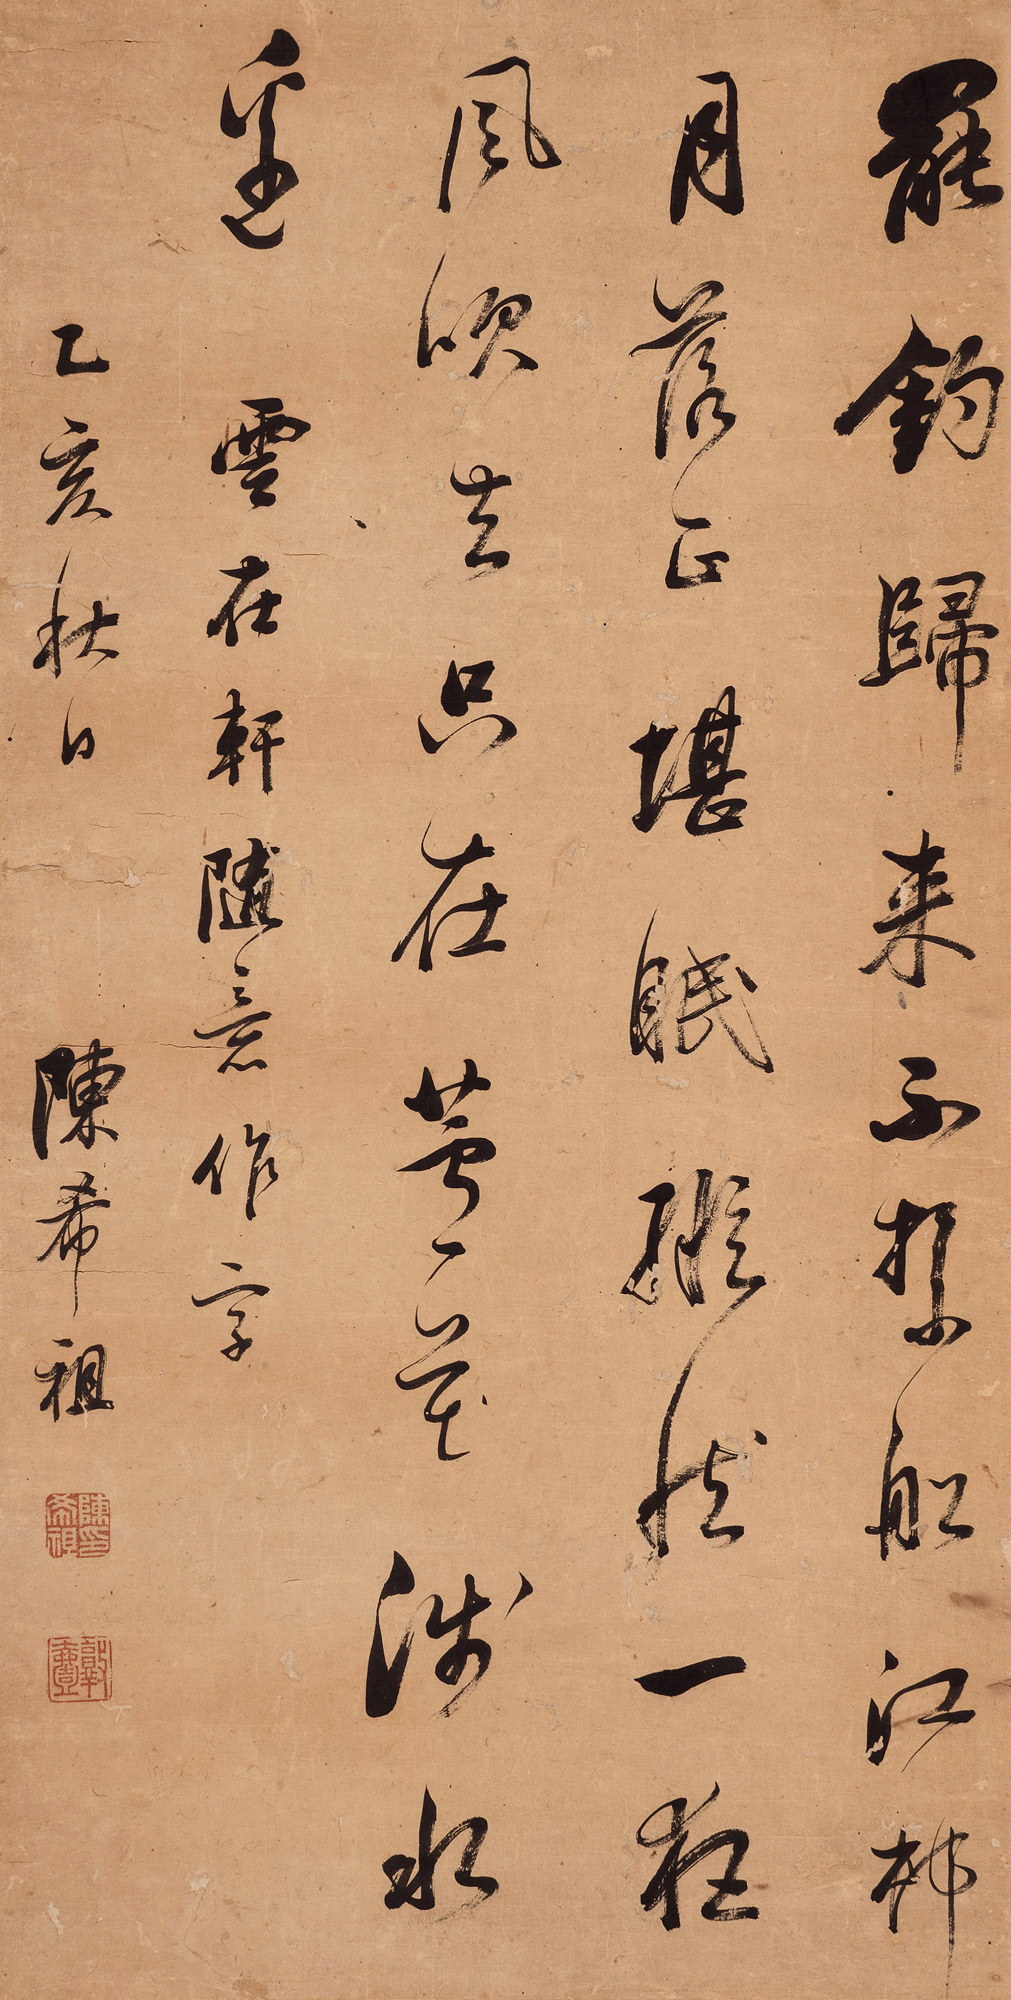 罷釣歸来不繫船江村
月落正堪眠縱然一夜
風吹去只在蘆花淺水
邊 雲在軒隨意作字
乙亥秋日 陳希祖
陳印希祖